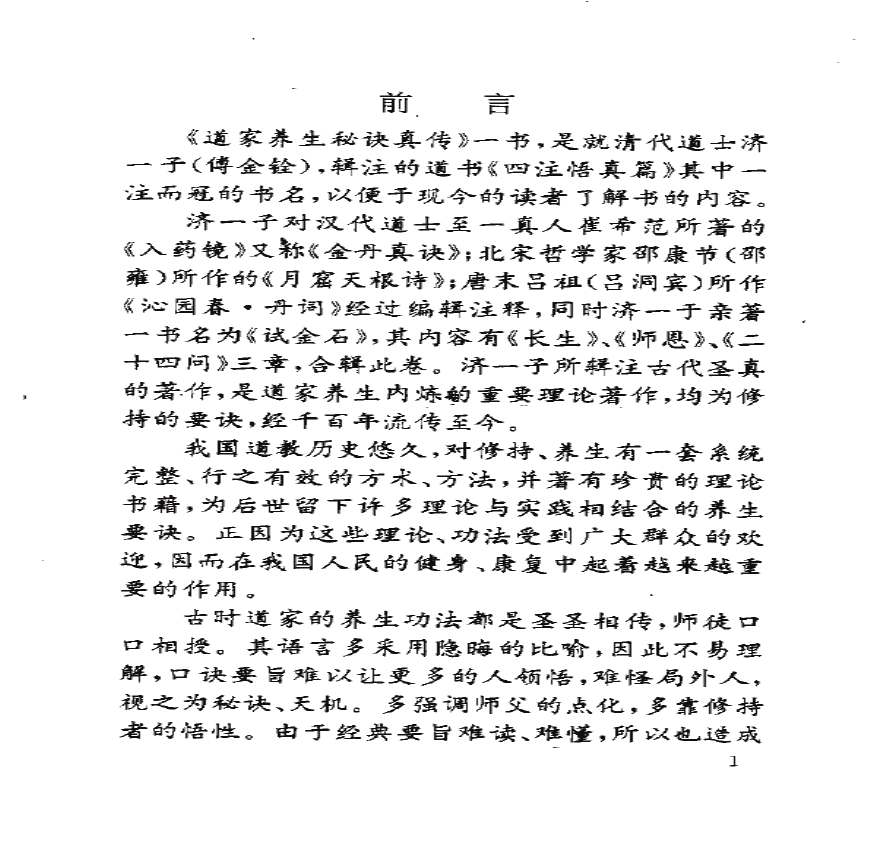 前言
《道家养生秘诀真传》一书,是就清代道士济
一子(傅金铨),辑注的道书《四注悟真篇》其中一
注而冠的书名,以便于现今的读者了解书的内容。
济一子对汉代道士至一真人崔希范所著的
《入药镜》又称《金丹真诀》;北宋哲学家邵康节(邵
雍)所作的《月窟天根诗》;唐末吕祖(吕洞宾)所作
《沁园春·丹词》经过编辑注释,同时济一子亲著
一书名为《试金石》,其内容有《长生》、《师恩》、《二
十四问》三章,合辑此卷。济一子所辑注古代圣真
的著作,是道家养生内炼的重要理论著作,均为修
持的要诀,经千百年流传至今。
我国道教历史悠久,对修持、养生有一套系统
完整、行之有效的方术、方法,并著有珍贵的理论
书籍,为后世留下许多理论与实践相结合的养生
要诀。正因为这些理论、功法受到广大群众的欢
迎,因而在我国人民的健身、康复中起着越来越重
要的作用。
古时道家的养生功法都是圣圣相传,师徒口
口相授。其语言多采用隐晦的比喻,因此不易理
解,口诀要旨难以让更多的人领悟,难怪局外人,
视之为秘诀、天机。多强调师父的点化,多靠修持
者的悟性。由于经典要旨难读、难懂,所以也造成
1